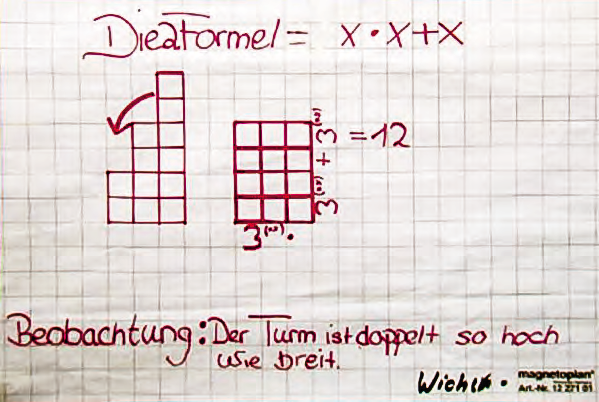 Die 2a Formel = x · x + x
3(x) + 3(x) = 12
3(x) ·
Beobachtung: Der Turm ist doppelt so hoch
wie breit.
magnetoplan®
Art.-Nr. 12 271 01